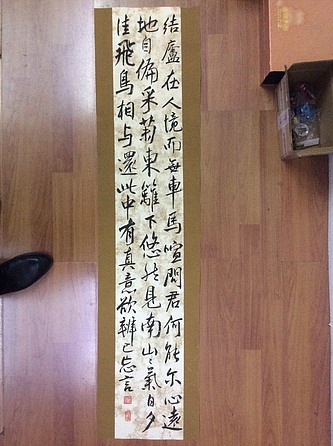 结廬在人境而無車馬喧問君何能尔心遠
地自偏采菊東籬下悠然見南山山氣日夕
佳飛鳥相与還此中有真意欲辨已忘言